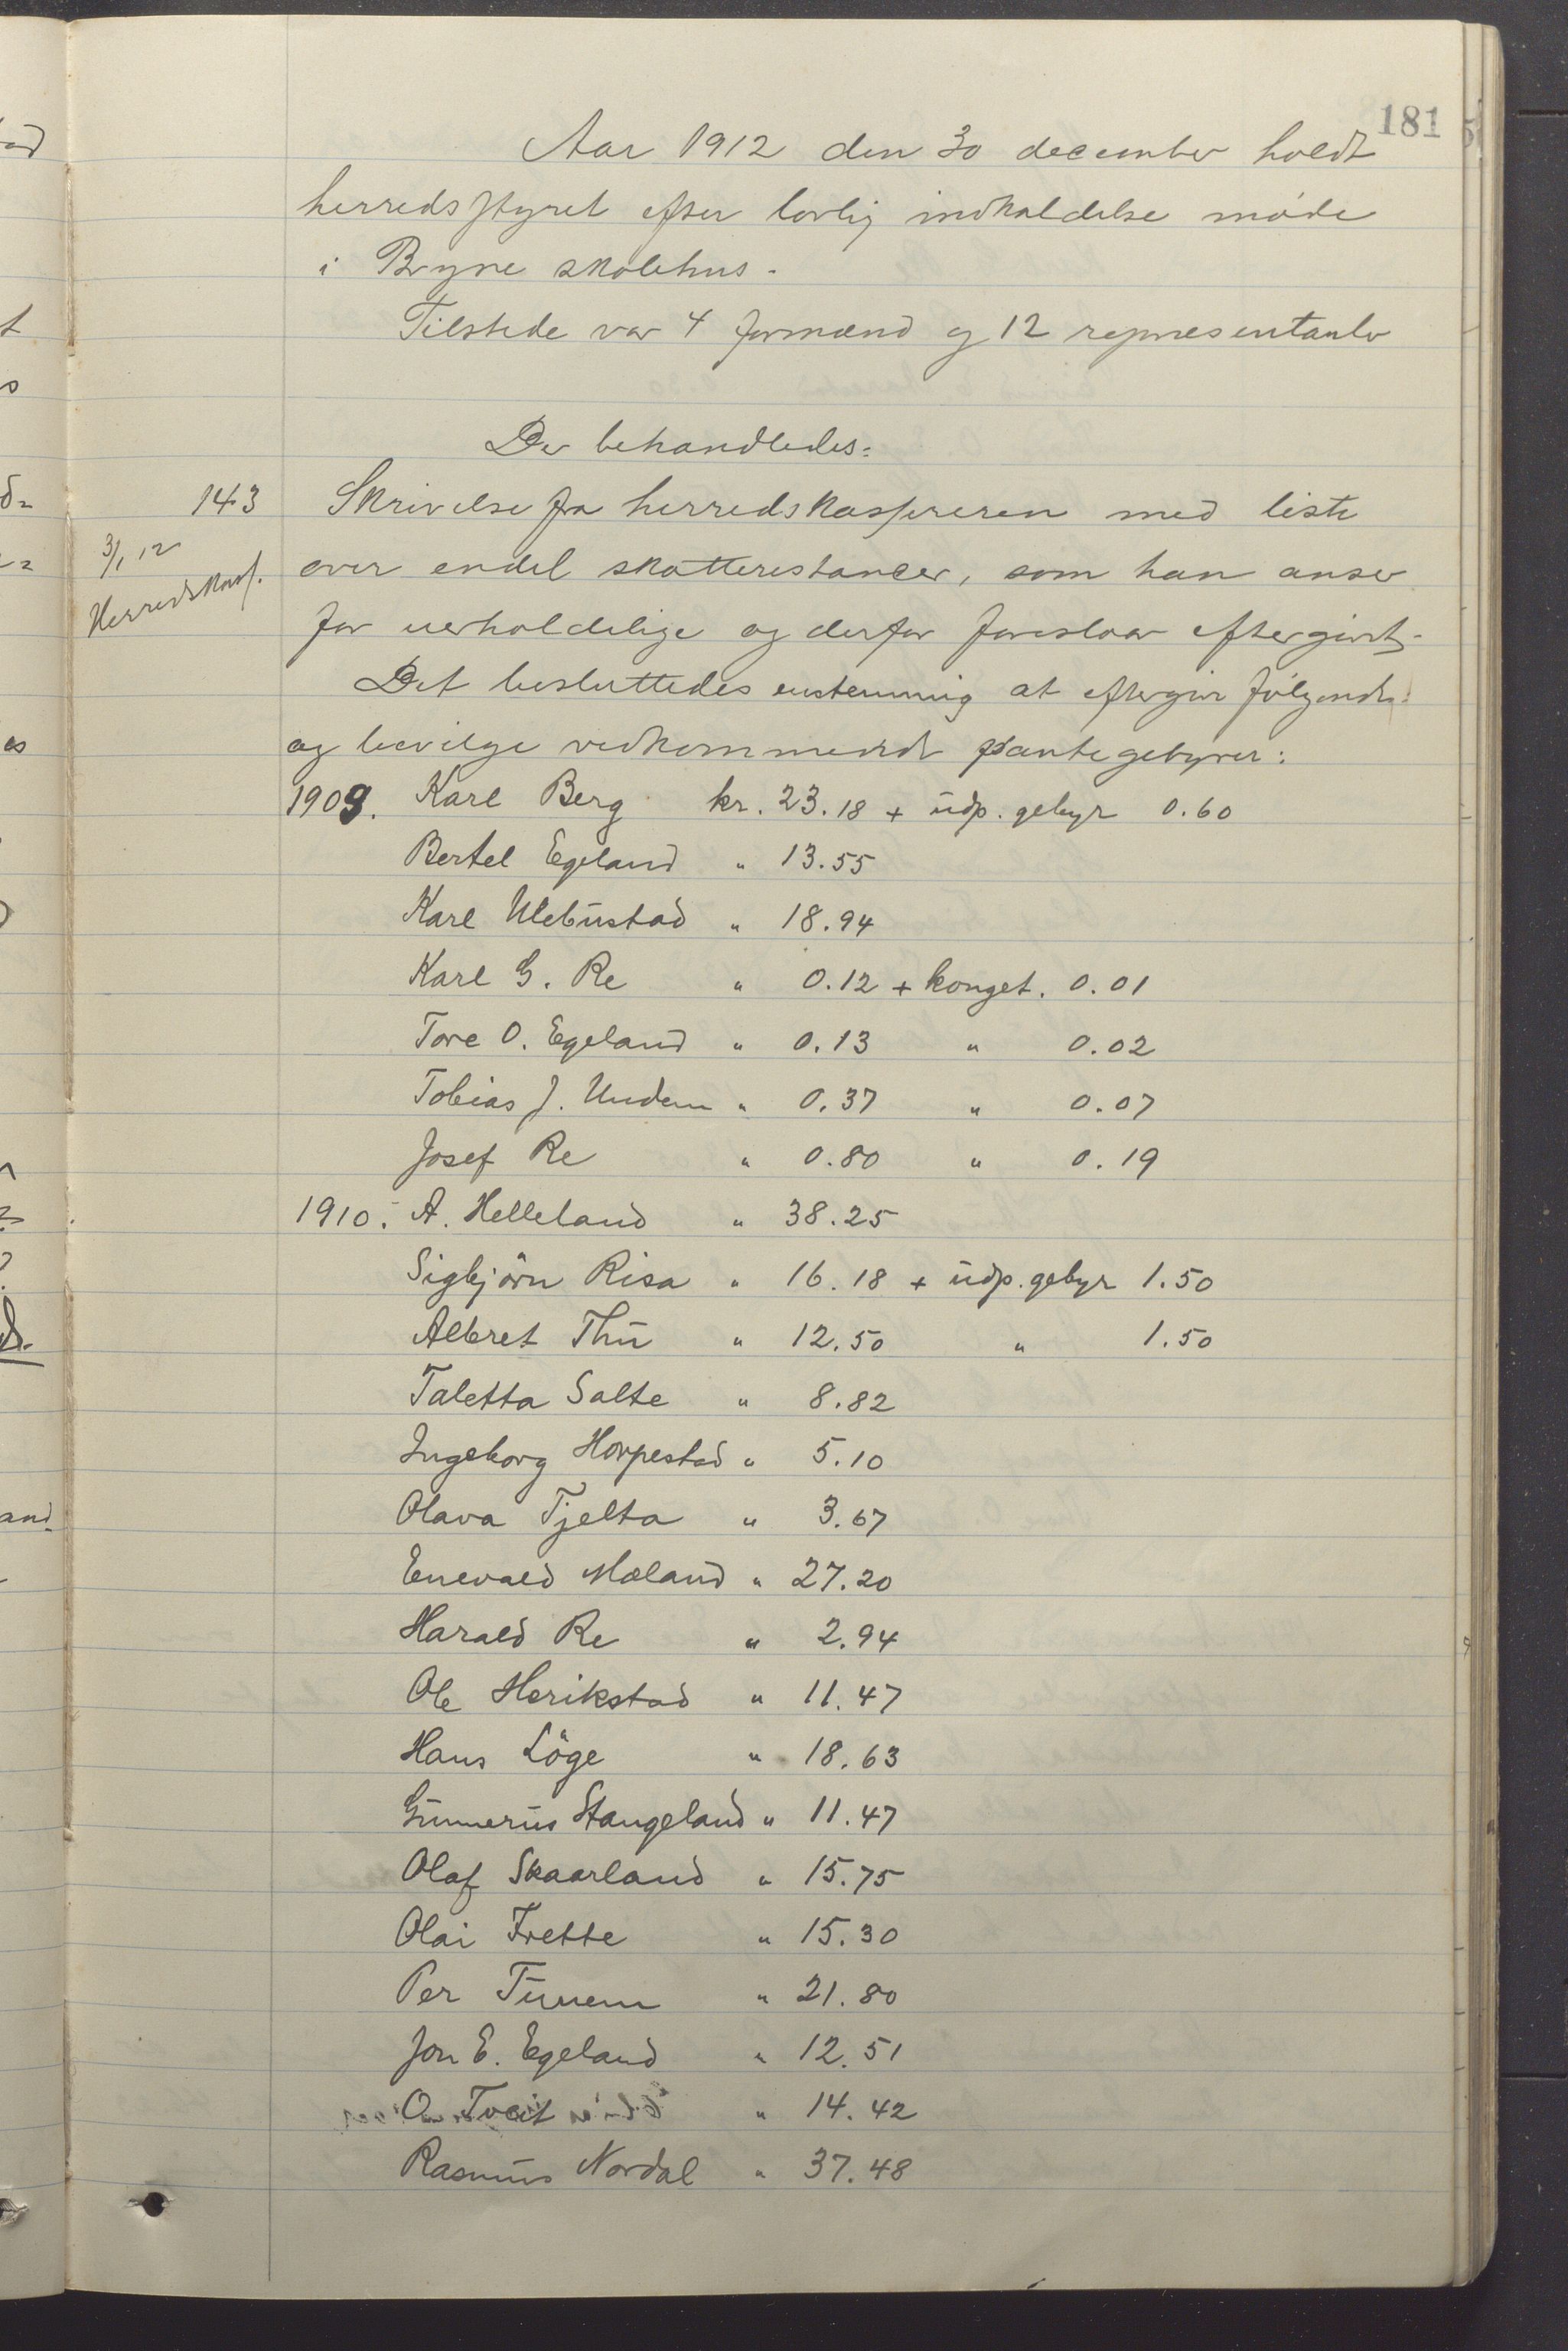 181
Aar 1912 den 30 december holdt
herredsstyret efter lovlig indkaldelse møde
i Bryne skolehus.
Tilstede var 4 formænd og 12 representanter
Der behandledes:
143 Skrivelse fra herredskassereren med liste
3/1 12
Herredskass.
over endel skatterestancer, som han anser
for uerholdelige og derfor foreslaar eftergivt.
Det besluttedes enstemmig at eftergive følgende
og bevilge vedkommende pantegebyrer:
1909. Karl Berg kr. 23.18 + udp. gebyr 0.60
Bertel Egeland " 13.55
Karl Ulebustad " 18.94
Karl G. Re " 0.12 + konget. 0.01
Tore O. Egeland " 0.13 " 0.02
Tobias J. Undem " 0.37 " 0.07
Josef Re " 0.80 " 0.19
1910. A. Helleland " 38.25
Sigbjörn Risa " 16.18 + udp. gebyr 1.50
Albret Thu " 12.50 " 1.50
Taletta Salte " 8.82
Ingeborg Horpestad " 5.10
Olava Tjelta " 3.67
Enevald Mæland " 27.20
Harald Re " 2.94
Ole Herikstad " 11.47
Hans Löge " 18.63
Gunnerius Stangeland " 11.47
Olaf Skaarland " 15.75
Olai Frette " 15.30
Per Tunem " 21.80
Jon E. Egeland " 12.51
O. Tveit " 14.42
Rasmus Nordal " 37.48